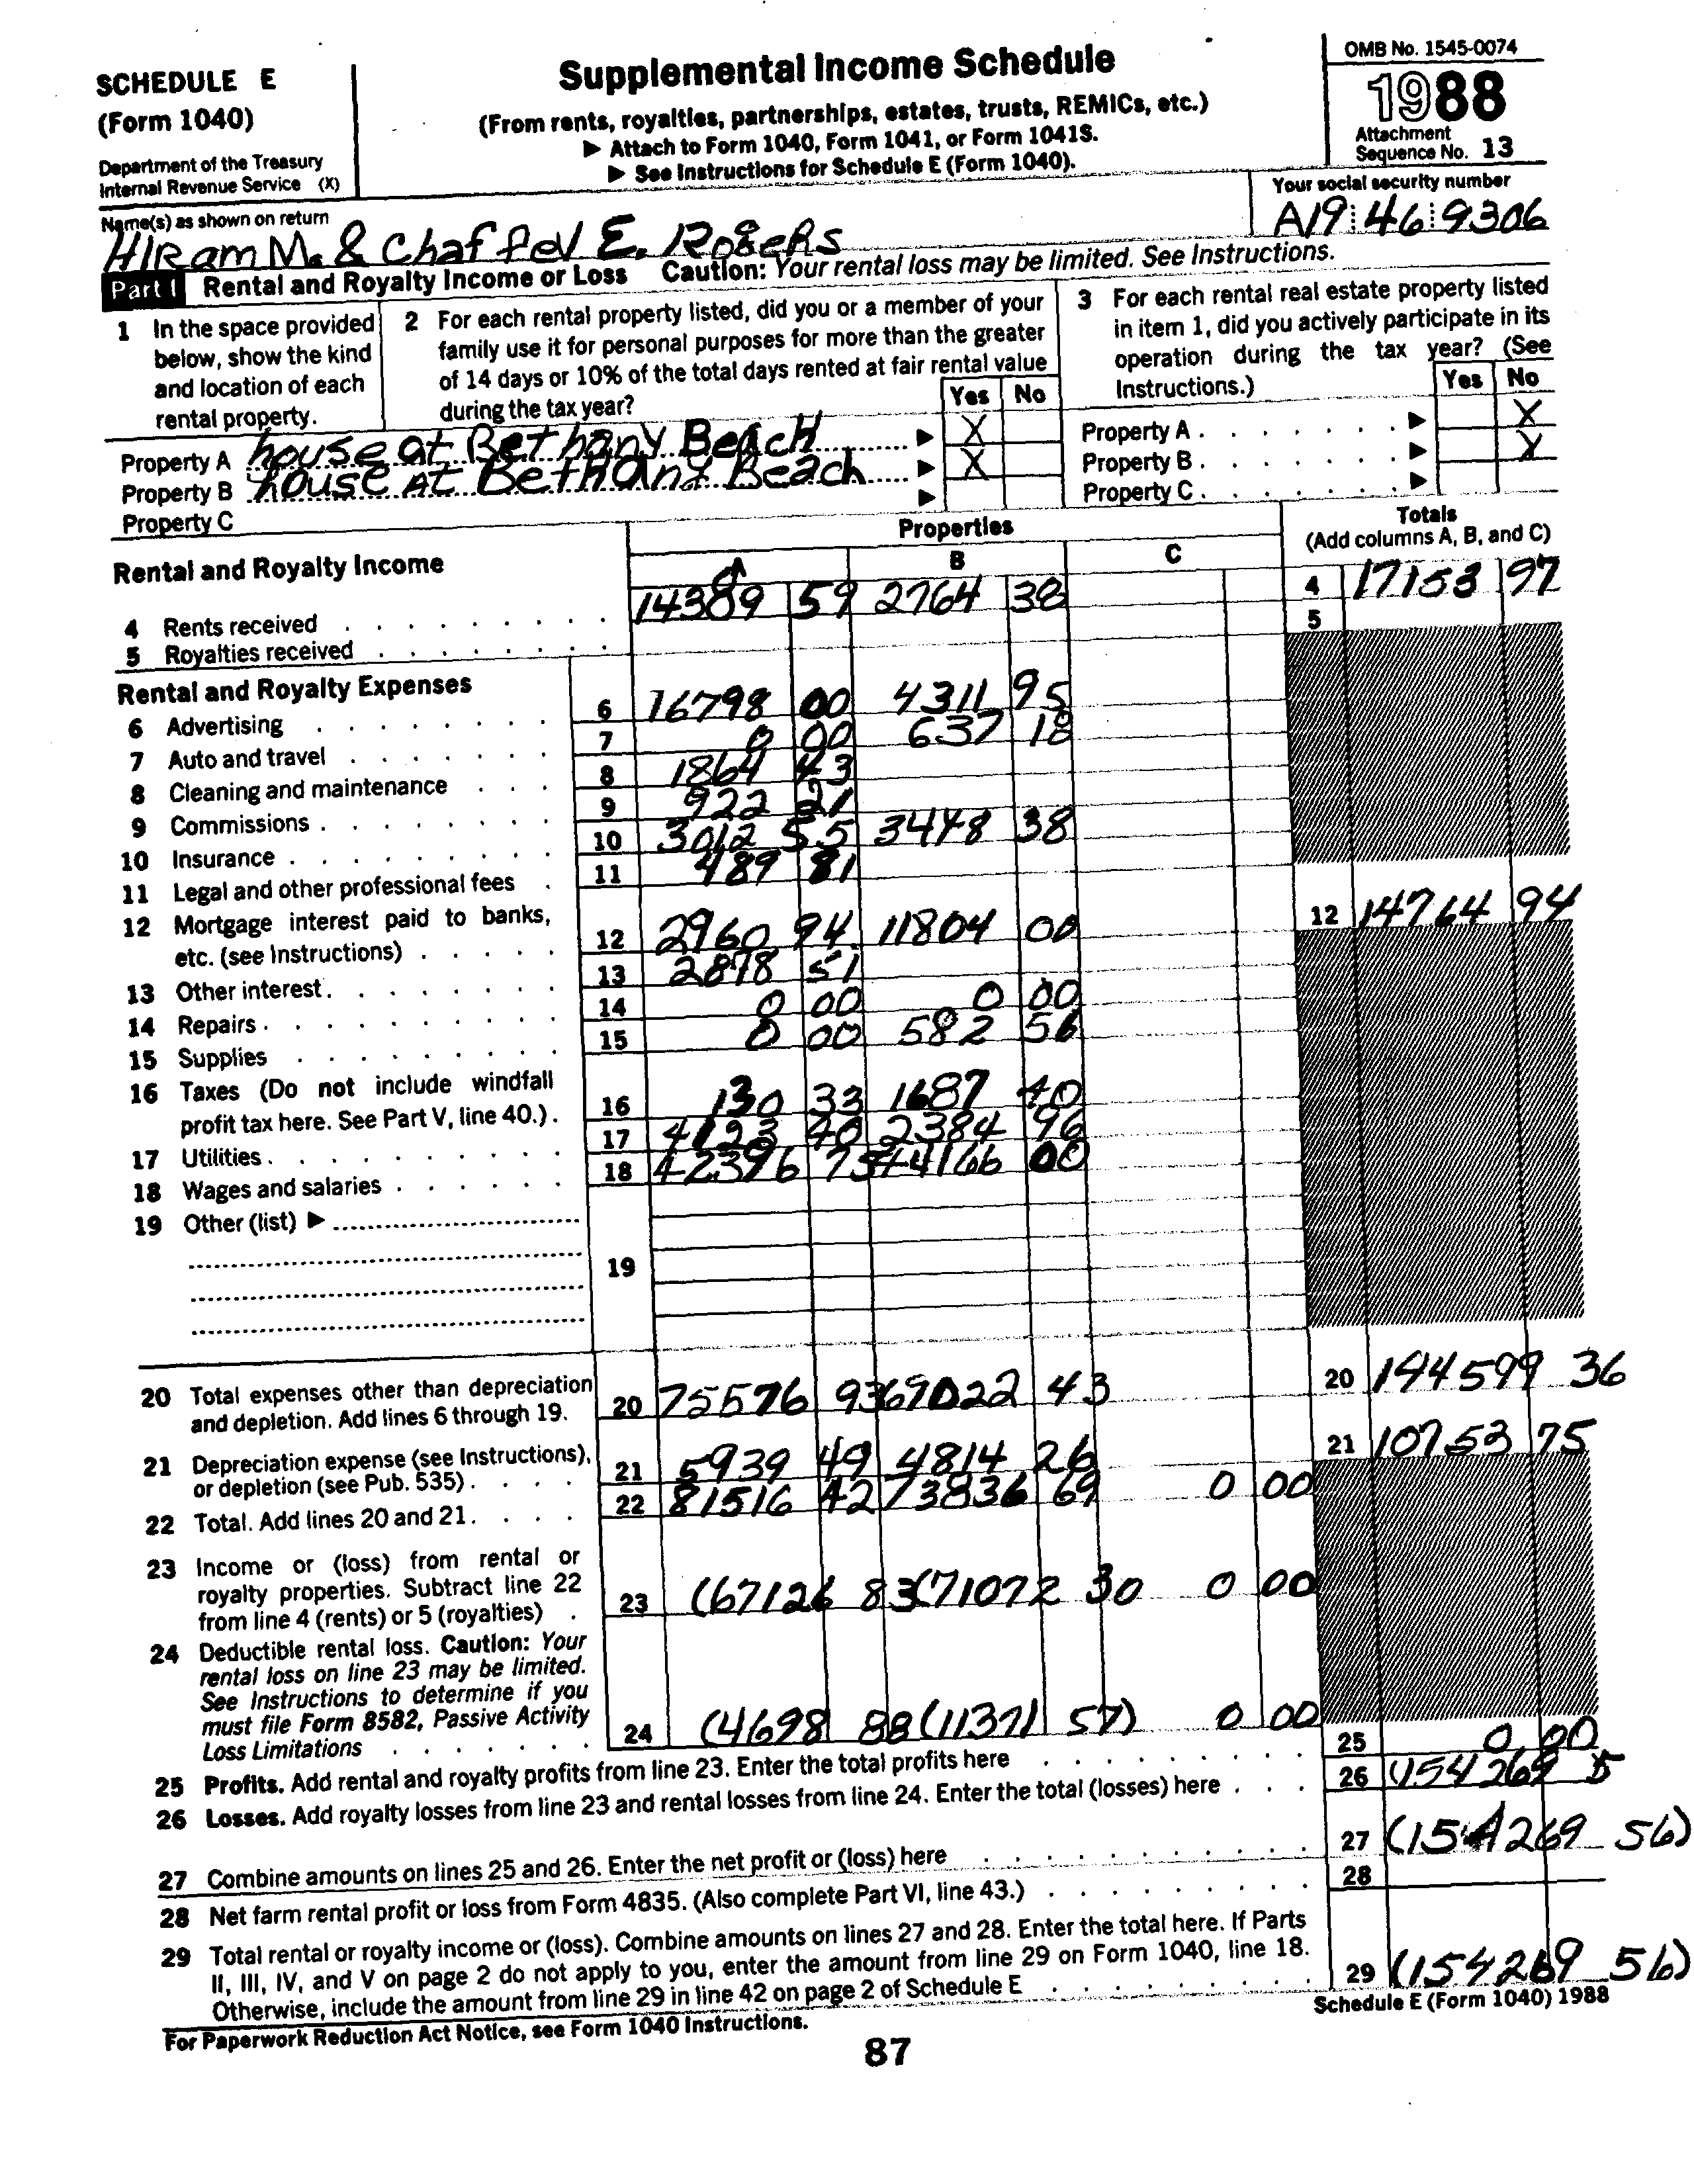 SCHEDULE E
(Form 1040)
Department of the Treasury
Internal Revenue Service (X)
Supplemental Income Schedule
(From rents, royalties, partnerships, estates, trusts, REMICs, etc.)
▶ Attach to Form 1040, Form 1041, or Form 1041S.
▶ See Instructions for Schedule E (Form 1040).
OMB No. 1545-0074
1988
Attachment
Sequence No. 13
Name(s) as shown on return
HIRam M. & Chaffel E. Rogers
Your social security number
A19 46 9306
Part I Rental and Royalty Income or Loss Caution: Your rental loss may be limited. See Instructions.
1 In the space provided
below, show the kind
and location of each
rental property.
2 For each rental property listed, did you or a member of your
family use it for personal purposes for more than the greater
of 14 days or 10% of the total days rented at fair rental value
during the tax year?
Yes No
3 For each rental real estate property listed
in item 1, did you actively participate in its
operation during the tax year? (See
Instructions.)
Yes No
Property A house at Bethany Beach ▶ X
Property B house at Bethany Beach ▶ X
Property C ▶
Property A ▶ X
Property B ▶ X
Property C ▶
Rental and Royalty Income
Properties
A B C
Totals
(Add columns A, B, and C)
4 Rents received 14389 59 2764 38 4 17153 97
5 Royalties received 5
Rental and Royalty Expenses
6 Advertising 6 16798 00 4311 95
7 Auto and travel 7 0 00 637 18
8 Cleaning and maintenance 8 1864 43
9 Commissions 9 922 21
10 Insurance 10 3012 55 3448 38
11 Legal and other professional fees 11 489 81
12 Mortgage interest paid to banks,
etc. (see Instructions) 12 2960 94 11804 00 12 14764 94
13 Other interest 13 2878 51
14 Repairs 14 0 00 0 00
15 Supplies 15 0 00 582 56
16 Taxes (Do not include windfall
profit tax here. See Part V, line 40.) 16 130 33 1687 40
17 Utilities 17 4123 40 2384 96
18 Wages and salaries 18 42396 75 44166 00
19 Other (list) ▶
19
20 Total expenses other than depreciation
and depletion. Add lines 6 through 19. 20 75576 93 69022 43 20 144599 36
21 Depreciation expense (see Instructions),
or depletion (see Pub. 535) 21 5939 49 4814 26 21 10753 75
22 Total. Add lines 20 and 21 22 81516 42 73836 69 0 00
23 Income or (loss) from rental or
royalty properties. Subtract line 22
from line 4 (rents) or 5 (royalties) 23 (67126 83 (71072 30 0 00
24 Deductible rental loss. Caution: Your
rental loss on line 23 may be limited.
See Instructions to determine if you
must file Form 8582, Passive Activity
Loss Limitations 24 (4698 88 (11371 57) 0 00
25 Profits. Add rental and royalty profits from line 23. Enter the total profits here 25 0 00
26 Losses. Add royalty losses from line 23 and rental losses from line 24. Enter the total (losses) here 26 (154269
27 Combine amounts on lines 25 and 26. Enter the net profit or (loss) here 27 (154269 56)
28 Net farm rental profit or loss from Form 4835. (Also complete Part VI, line 43.) 28
29 Total rental or royalty income or (loss). Combine amounts on lines 27 and 28. Enter the total here. If Parts
II, III, IV, and V on page 2 do not apply to you, enter the amount from line 29 on Form 1040, line 18.
Otherwise, include the amount from line 29 in line 42 on page 2 of Schedule E 29 (154269 56)
For Paperwork Reduction Act Notice, see Form 1040 Instructions.
Schedule E (Form 1040) 1988
87